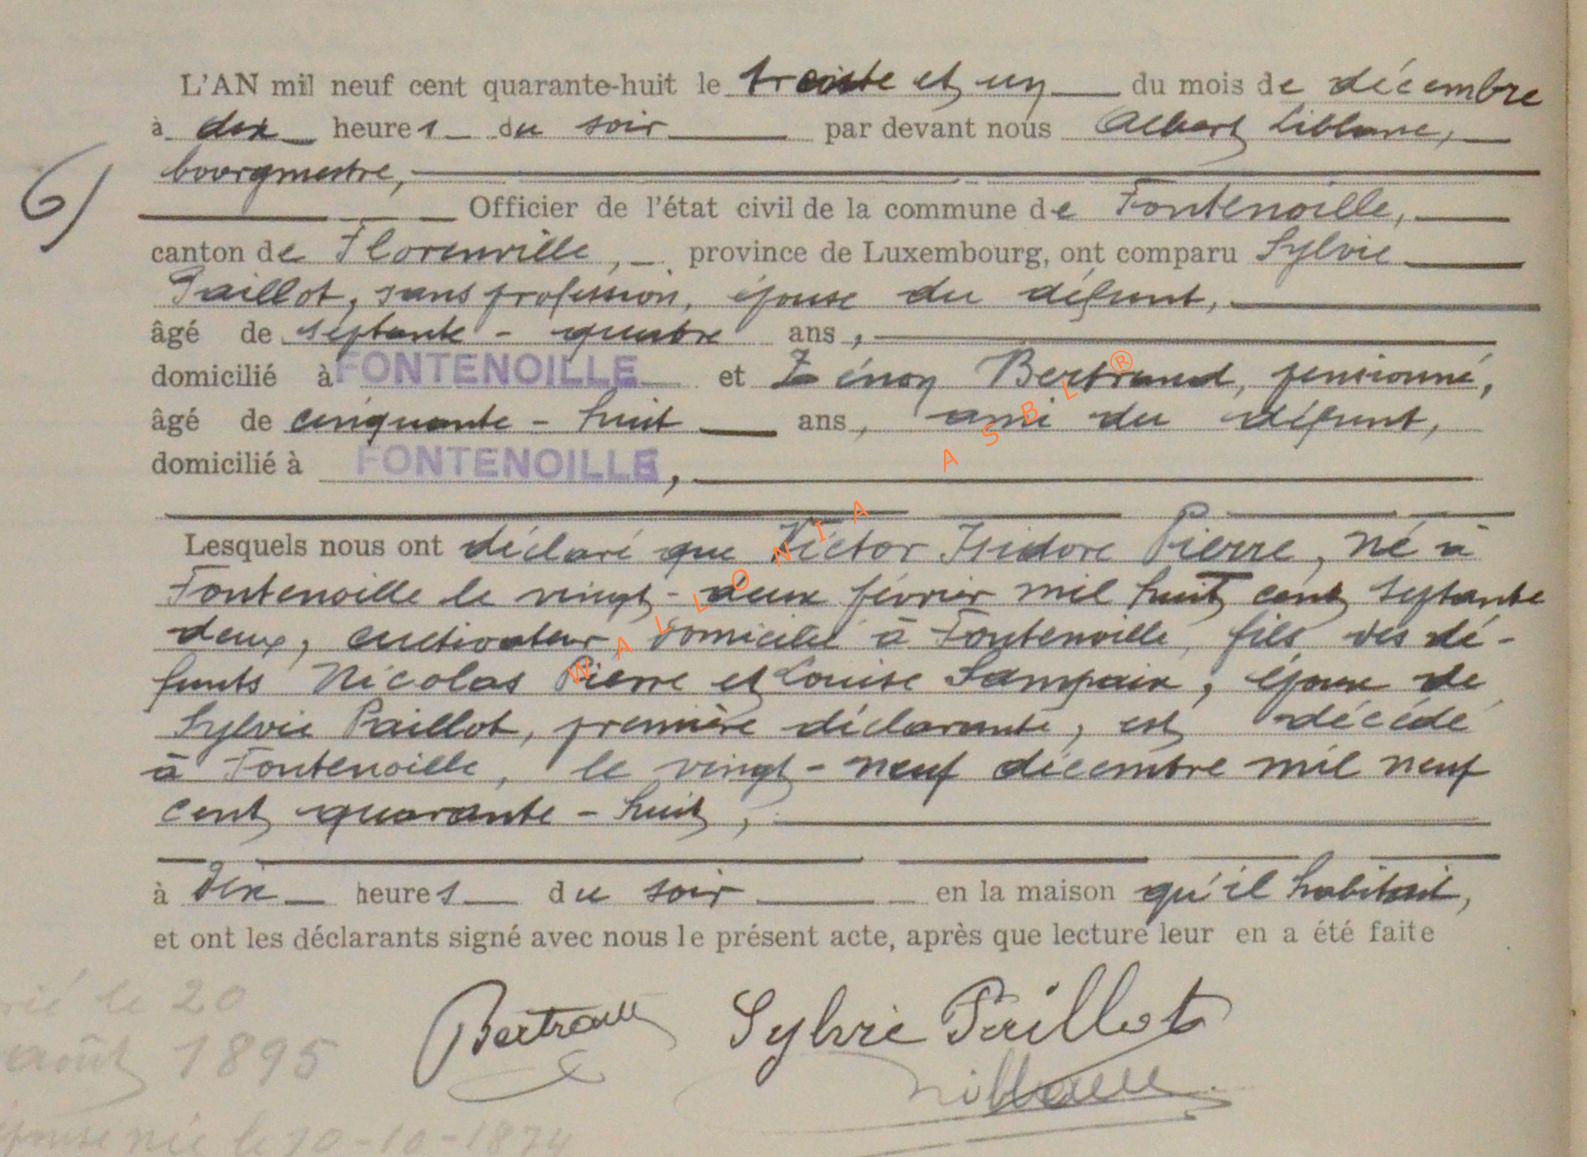 L'AN mil neuf cent quarante-huit le trente et un du mois de décembre
à dix heures du soir par devant nous Albert Liblanc,
bourgmestre,
6)
Officier de l'état civil de la commune de Fontenoille,
canton de Florenville, province de Luxembourg, ont comparu Sylvie
Paillot, sans profession, épouse du défunt,
âgé de septante-quatre ans,
domicilié à FONTENOILLE et Zénon Bertrand, pensionné,
âgé de cinquante-huit ans, ami du défunt,
domicilié à FONTENOILLE,
WALLONIA ASBL®
Lesquels nous ont déclaré que Victor Isidore Pierre, né à
Fontenoille le vingt-deux février mil huit cent septante
deux, cultivateur domicilié à Fontenoille, fils des dé-
funts Nicolas Pierre et Louise Sampaix, époux de
Sylvie Paillot, première déclarante, est décédé
à Fontenoille, le vingt-neuf décembre mil neuf
cent quarante-huit,
à dix heures du soir en la maison qu'il habitait,
et ont les déclarants signé avec nous le présent acte, après que lecture leur en a été faite
Bertrand Sylvie Paillot
le 20
août 1895
épouse née le 20-10-1874